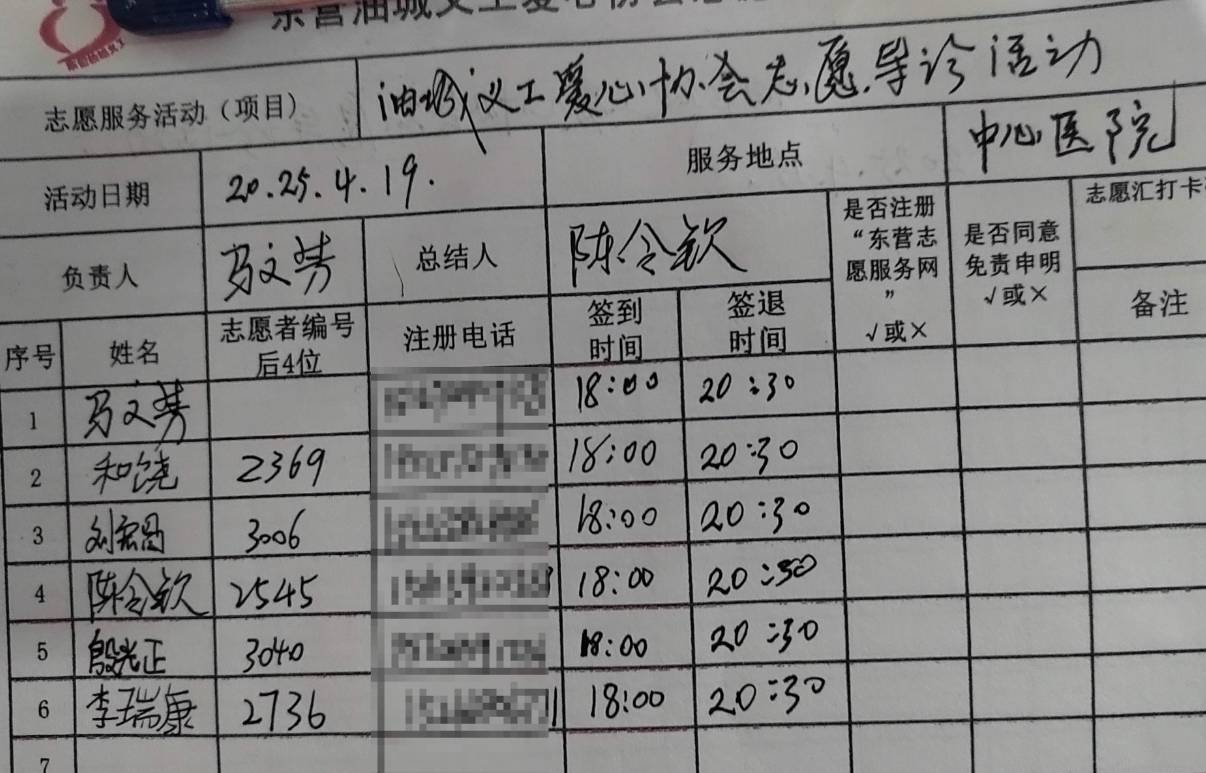 东营油城义工爱心协会志愿
志愿服务活动（项目） 油城义工爱心协会志愿导诊活动
活动日期 2025.4.19. 服务地点 中心医院
负责人 马文芳 总结人 陈令钦 是否注册“东营志愿服务网” √或× 是否同意免责申明 √或× 志愿汇打卡
备注
序号 姓名 志愿者编号后4位 注册电话 签到时间 签退时间
1 马文芳 18:00 20:30
2 和饶 2369 18:00 20:30
3 刘宏图 3006 18:00 20:30
4 陈令钦 2545 18:00 20:30
5 殷光正 3040 18:00 20:30
6 李瑞康 2736 18:00 20:30
7